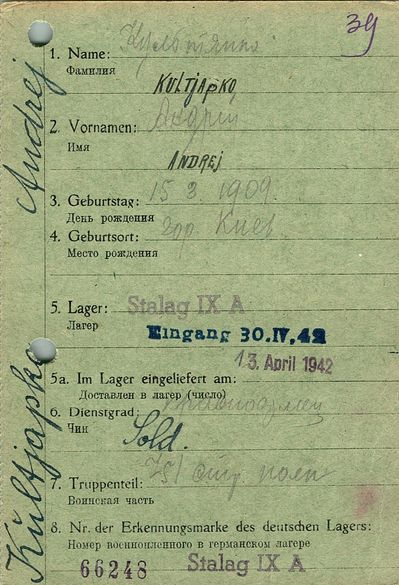 39
1. Name:
Фамилия
KULTJAPKO,
2. Vornamen: Андрий
Имя
ANDREJ
3. Geburtstag: 15 3. 1909.
День рождения
4. Geburtsort: гор. Киев
Место рождения
5. Lager: Stalag IX A
Лагерь
Eingang 30.IV.42
13. April 1942
5a. Im Lager eingeliefert am:
Доставлен в лагерь (число)
6. Dienstgrad: красноармеец
Чин
Sold.
7. Truppenteil: 751
Воинская часть
8. Nr. der Erkennungsmarke des deutschen Lagers:
Номер военнопленного в германском лагере
66248 Stalag IX A
Kultjapko Andrej